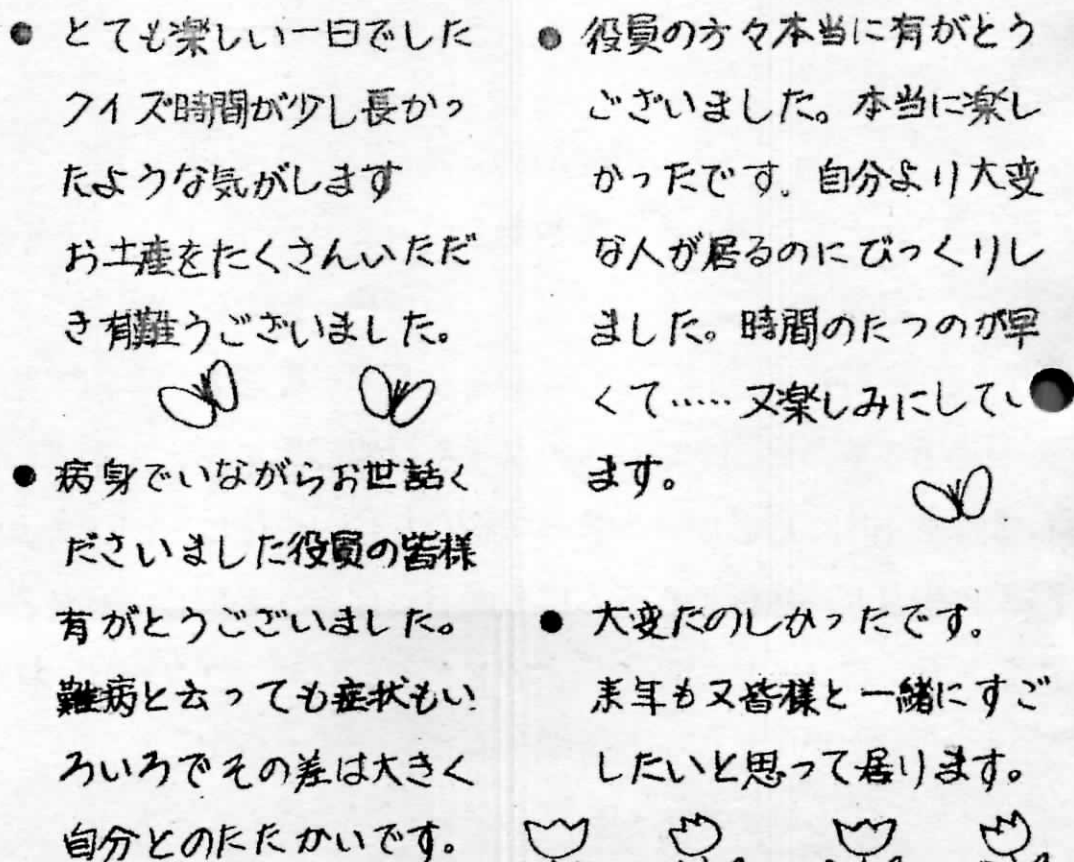 ● とても楽しい一日でした
クイズ時間が少し長かっ
たような気がします
お土産をたくさんいただ
き有難うございました。
● 病身でいながらお世話く
ださいました役員の皆様
有がとうございました。
難病と云っても症状もい
ろいろでその差は大きく
自分とのたたかいです。
● 役員の方々本当に有がとう
ございました。本当に楽し
かったです。自分より大変
な人が居るのにびっくりし
ました。時間のたつのが早
くて……又楽しみにしてい
ます。
● 大変たのしかったです。
来年も又皆様と一緒にすご
したいと思って居ります。